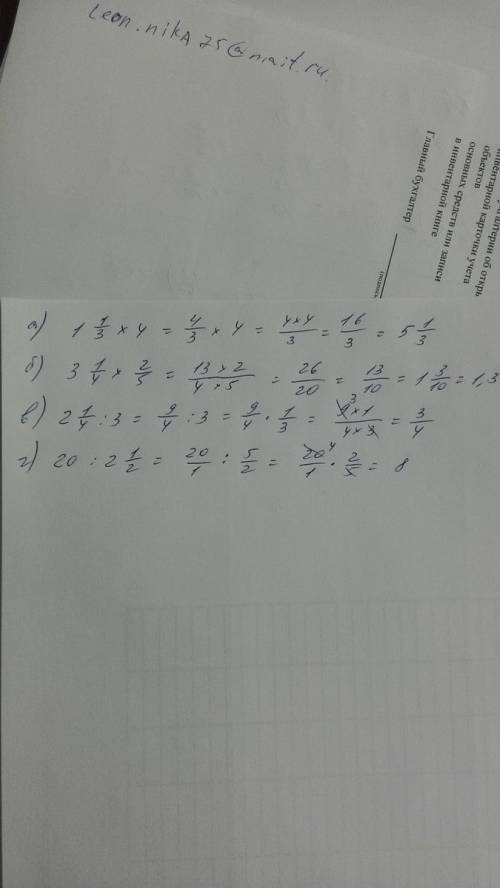 Leon.nikA75@mail.ru.
инвентарной карточки учета
объектов
основных средств или записи
в инвентарной книге
Главный бухгалтер
а) 1 1/3 × 4 = 4/3 × 4 = 4×4/3 = 16/3 = 5 1/3
б) 3 1/4 × 2/5 = 13×2/4×5 = 26/20 = 13/10 = 1 3/10 = 1,3
в) 2 1/4 : 3 = 9/4 : 3 = 9/4 · 1/3 = 9×1/4×3 = 3/4
г) 20 : 2 1/2 = 20/1 : 5/2 = 20/1 · 2/5 = 8